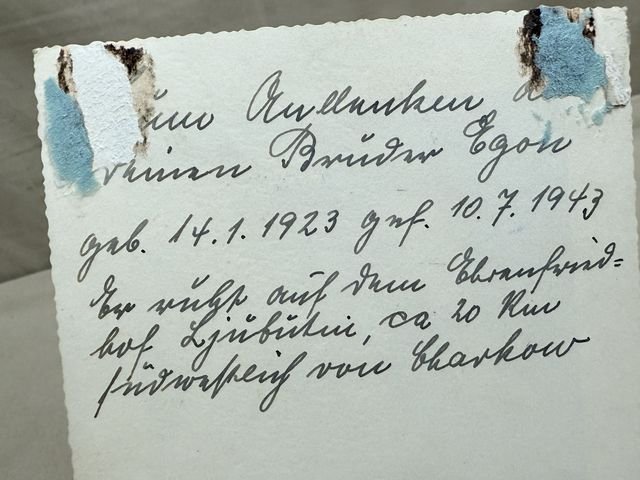 Zum Andenken
deinen Bruder Egon
geb. 14.1.1923 gef. 10.7.1943
Er ruht auf dem Ehrenfried=
hof Ljubutin, ca 20 Km
südwestlich von Charkow